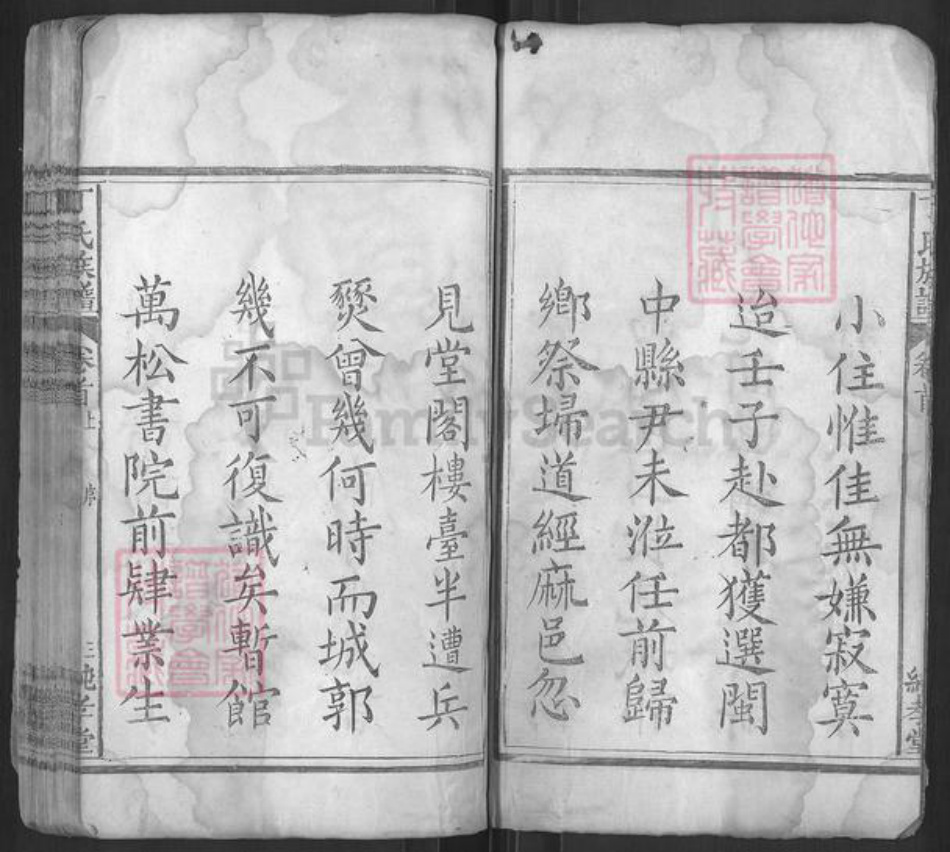 小住惟佳無嫌寂寞
迨壬子赴都獲選閩
中縣尹未涖任前歸
鄉祭埽道經麻邑忽
見堂閣樓臺半遭兵
燹曾幾何時而城郭
幾不可復識矣暫館
萬松書院前肄業生
丁氏族譜
卷首
序
純孝堂
FamilySearch